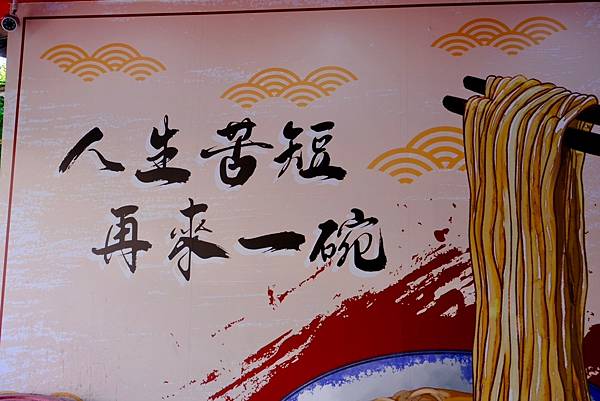 人生苦短
再來一碗